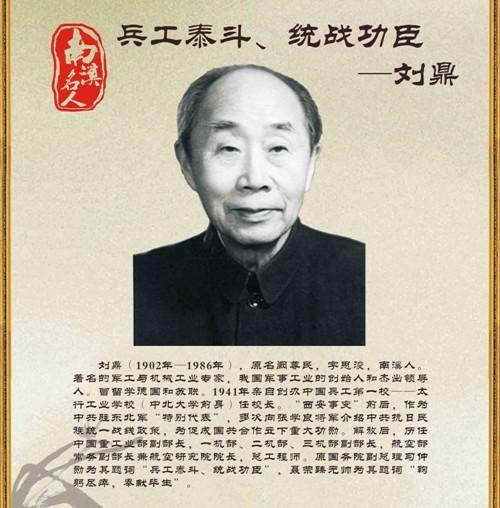 南溪名人
兵工泰斗、统战功臣
—刘鼎
刘鼎（1902年—1986年），原名阚尊民，字思俊，南溪人。
著名的军工与机械工业专家，我国军事工业的创始人和杰出领导
人。曾留学德国和苏联。1941年亲自创办中国兵工第一校——太
行工业学校（中北大学前身）任校长。“西安事变”前后，作为
中共驻东北军“特别代表”，多次向张学良将军介绍中共抗日民
族统一战线政策，为促成国共合作立下重大功勋。解放后，历任
中国重工业部副部长，一机部、二机部、三机部副部长，航空部
常务副部长兼航空研究院院长，总工程师。原国务院副总理习仲
勋为其题词“兵工泰斗、统战功臣”，聂荣臻元帅为其题词“鞠
躬尽瘁，奉献毕生”。